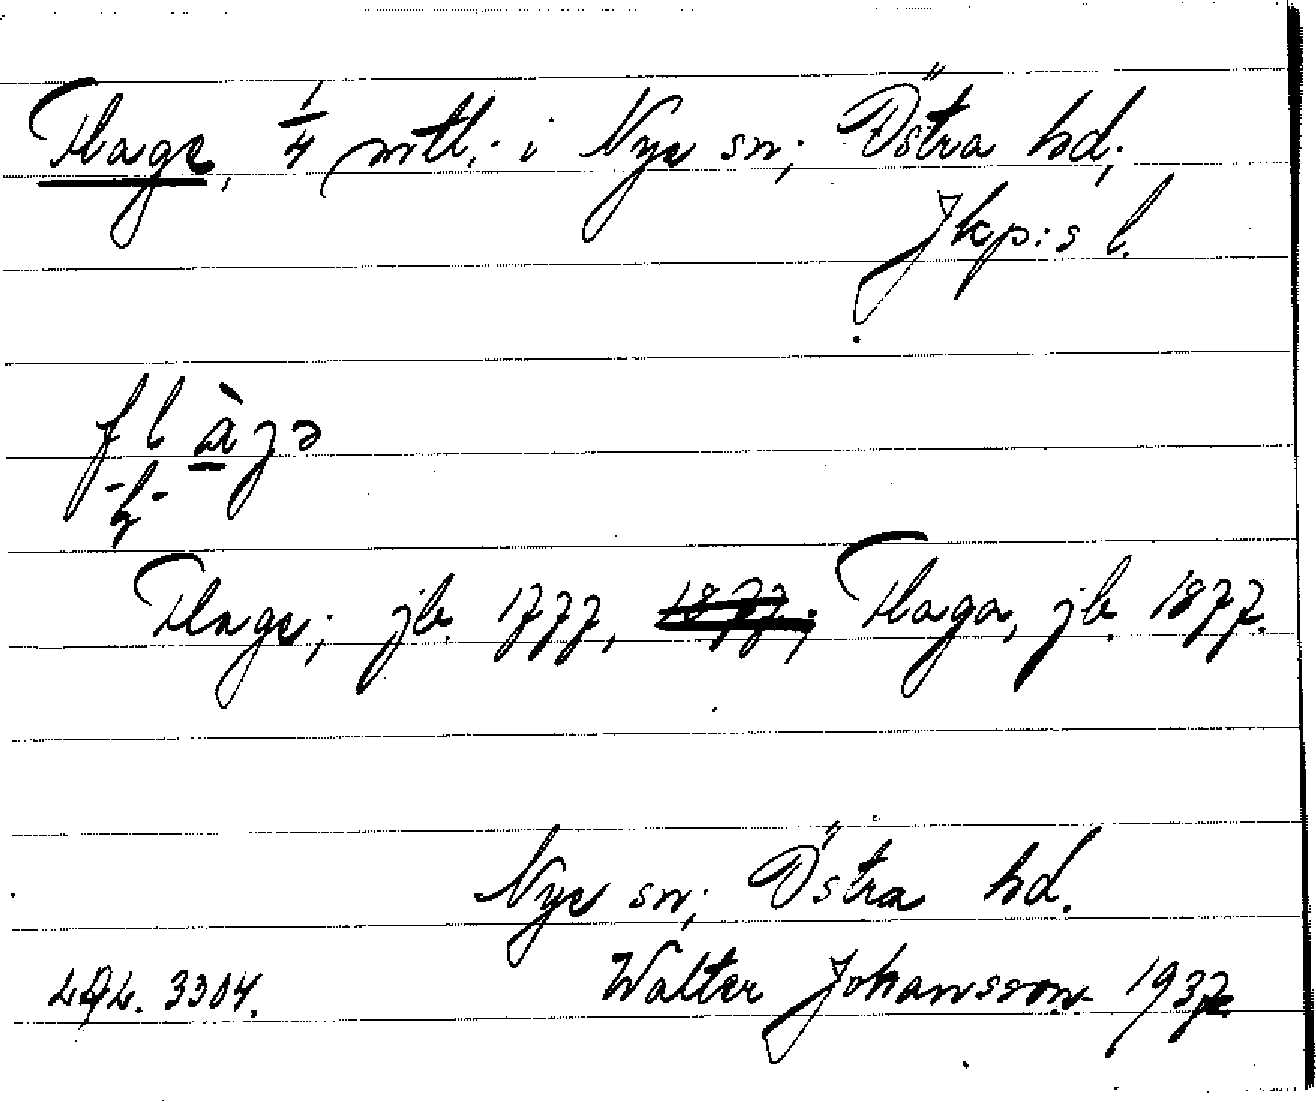 Flage, 1/4 mtl; i Nye sn; Östra hd;
Jkp:s l.
flàgə
-h-
Flage; jb. 1777, Flaga, jb. 1877.
Nye sn; Östra hd.
3304. Walter Johansson 1937